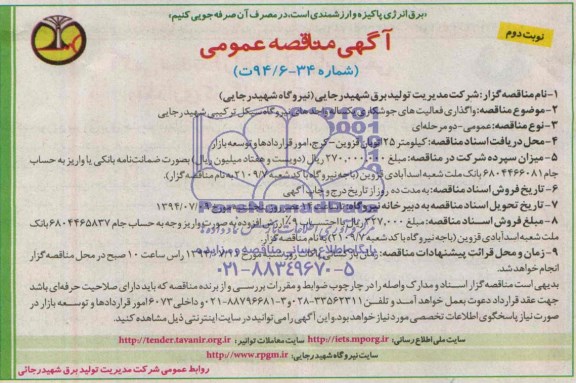 «برق انرژی پاکیزه و ارزشمندی است، در مصرف آن صرفه جویی کنیم»
نوبت دوم
آگهی مناقصه عمومی
(شماره ۳۴-۹۴/۶ت)
۱-نام مناقصه گزار: شرکت مدیریت تولید برق شهید رجایی (نیروگاه شهید رجایی)
۲-موضوع مناقصه: واگذاری فعالیت های جوشکاری یکساله واحدهای نیروگاه سیکل ترکیبی شهید رجایی
۳-نوع مناقصه: عمومی-دو مرحله ای
۴-محل دریافت اسناد مناقصه: کیلومتر ۲۵ اتوبان قزوین-کرج، امور قراردادها و توسعه بازار
۵-میزان سپرده شرکت در مناقصه: مبلغ ۲۷۰,۰۰۰,۰۰۰ ریال (دویست و هفتاد میلیون ریال) بصورت ضمانت نامه بانکی یا واریز به حساب
جام ۶۸۰۴۴۶۶۰۸۱ بانک ملت شعبه اسدآبادی قزوین (باجه نیروگاه با کد شعبه ۲۱۰۹/۷ به نام مناقصه گزار).
۶-تاریخ فروش اسناد مناقصه: به مدت ده روز از تاریخ درج و چاپ آگهی
۷-تاریخ تحویل اسناد مناقصه به دبیرخانه نیروگاه: تا ساعت ۱۴ روز ۱۳۹۴/۰۷/۰۹
۸-مبلغ فروش اسناد مناقصه: مبلغ ۳۲۷,۰۰۰ ریال با احتساب ۹٪ ارزش افزوده به صورت واریز وجه به حساب جام ۶۸۰۴۴۶۵۸۳۷ بانک
ملت شعبه اسدآبادی قزوین (باجه نیروگاه با کد شعبه ۲۱۰۹/۷) به نام مناقصه گزار.
۹-زمان و محل قرائت پیشنهادات مناقصه: زمان بازگشایی پاکات روز شنبه مورخ راس ساعت ۱۰ صبح در محل مناقصه گزار
انجام خواهد شد.
بدیهی است مناقصه گزار اسناد و مدارک واصله را در چارچوب ضوابط و مقررات بررسی و از برنده مناقصه که باید دارای صلاحیت حرفه ای باشد
جهت عقد قرارداد دعوت بعمل خواهد آمد و تلفن ۳۳۵۶۲۳۱۱-۰۲۸ و ۳-۸۸۷۹۶۶۸۱-۰۲۱ و داخلی ۶۰۷۳ امور قراردادها و توسعه بازار در
صورت نیاز پاسخگوی اطلاعات تخصصی مورد نیاز خواهد بود و این آگهی را می توانید در سایت اینترنتی ذیل مشاهده کنید.
سایت ملی اطلاع رسانی: http://iets.mporg.ir سایت معاملات توانیر: http://tender.tavanir.org.ir
سایت نیروگاه شهید رجایی: http://www.rpgm.ir
روابط عمومی شرکت مدیریت تولید برق شهید رجائی
پایگاه اطلاع رسانی مناقصه و مزایده
۰۲۱-۸۸۳۴۹۶۷۰-۵